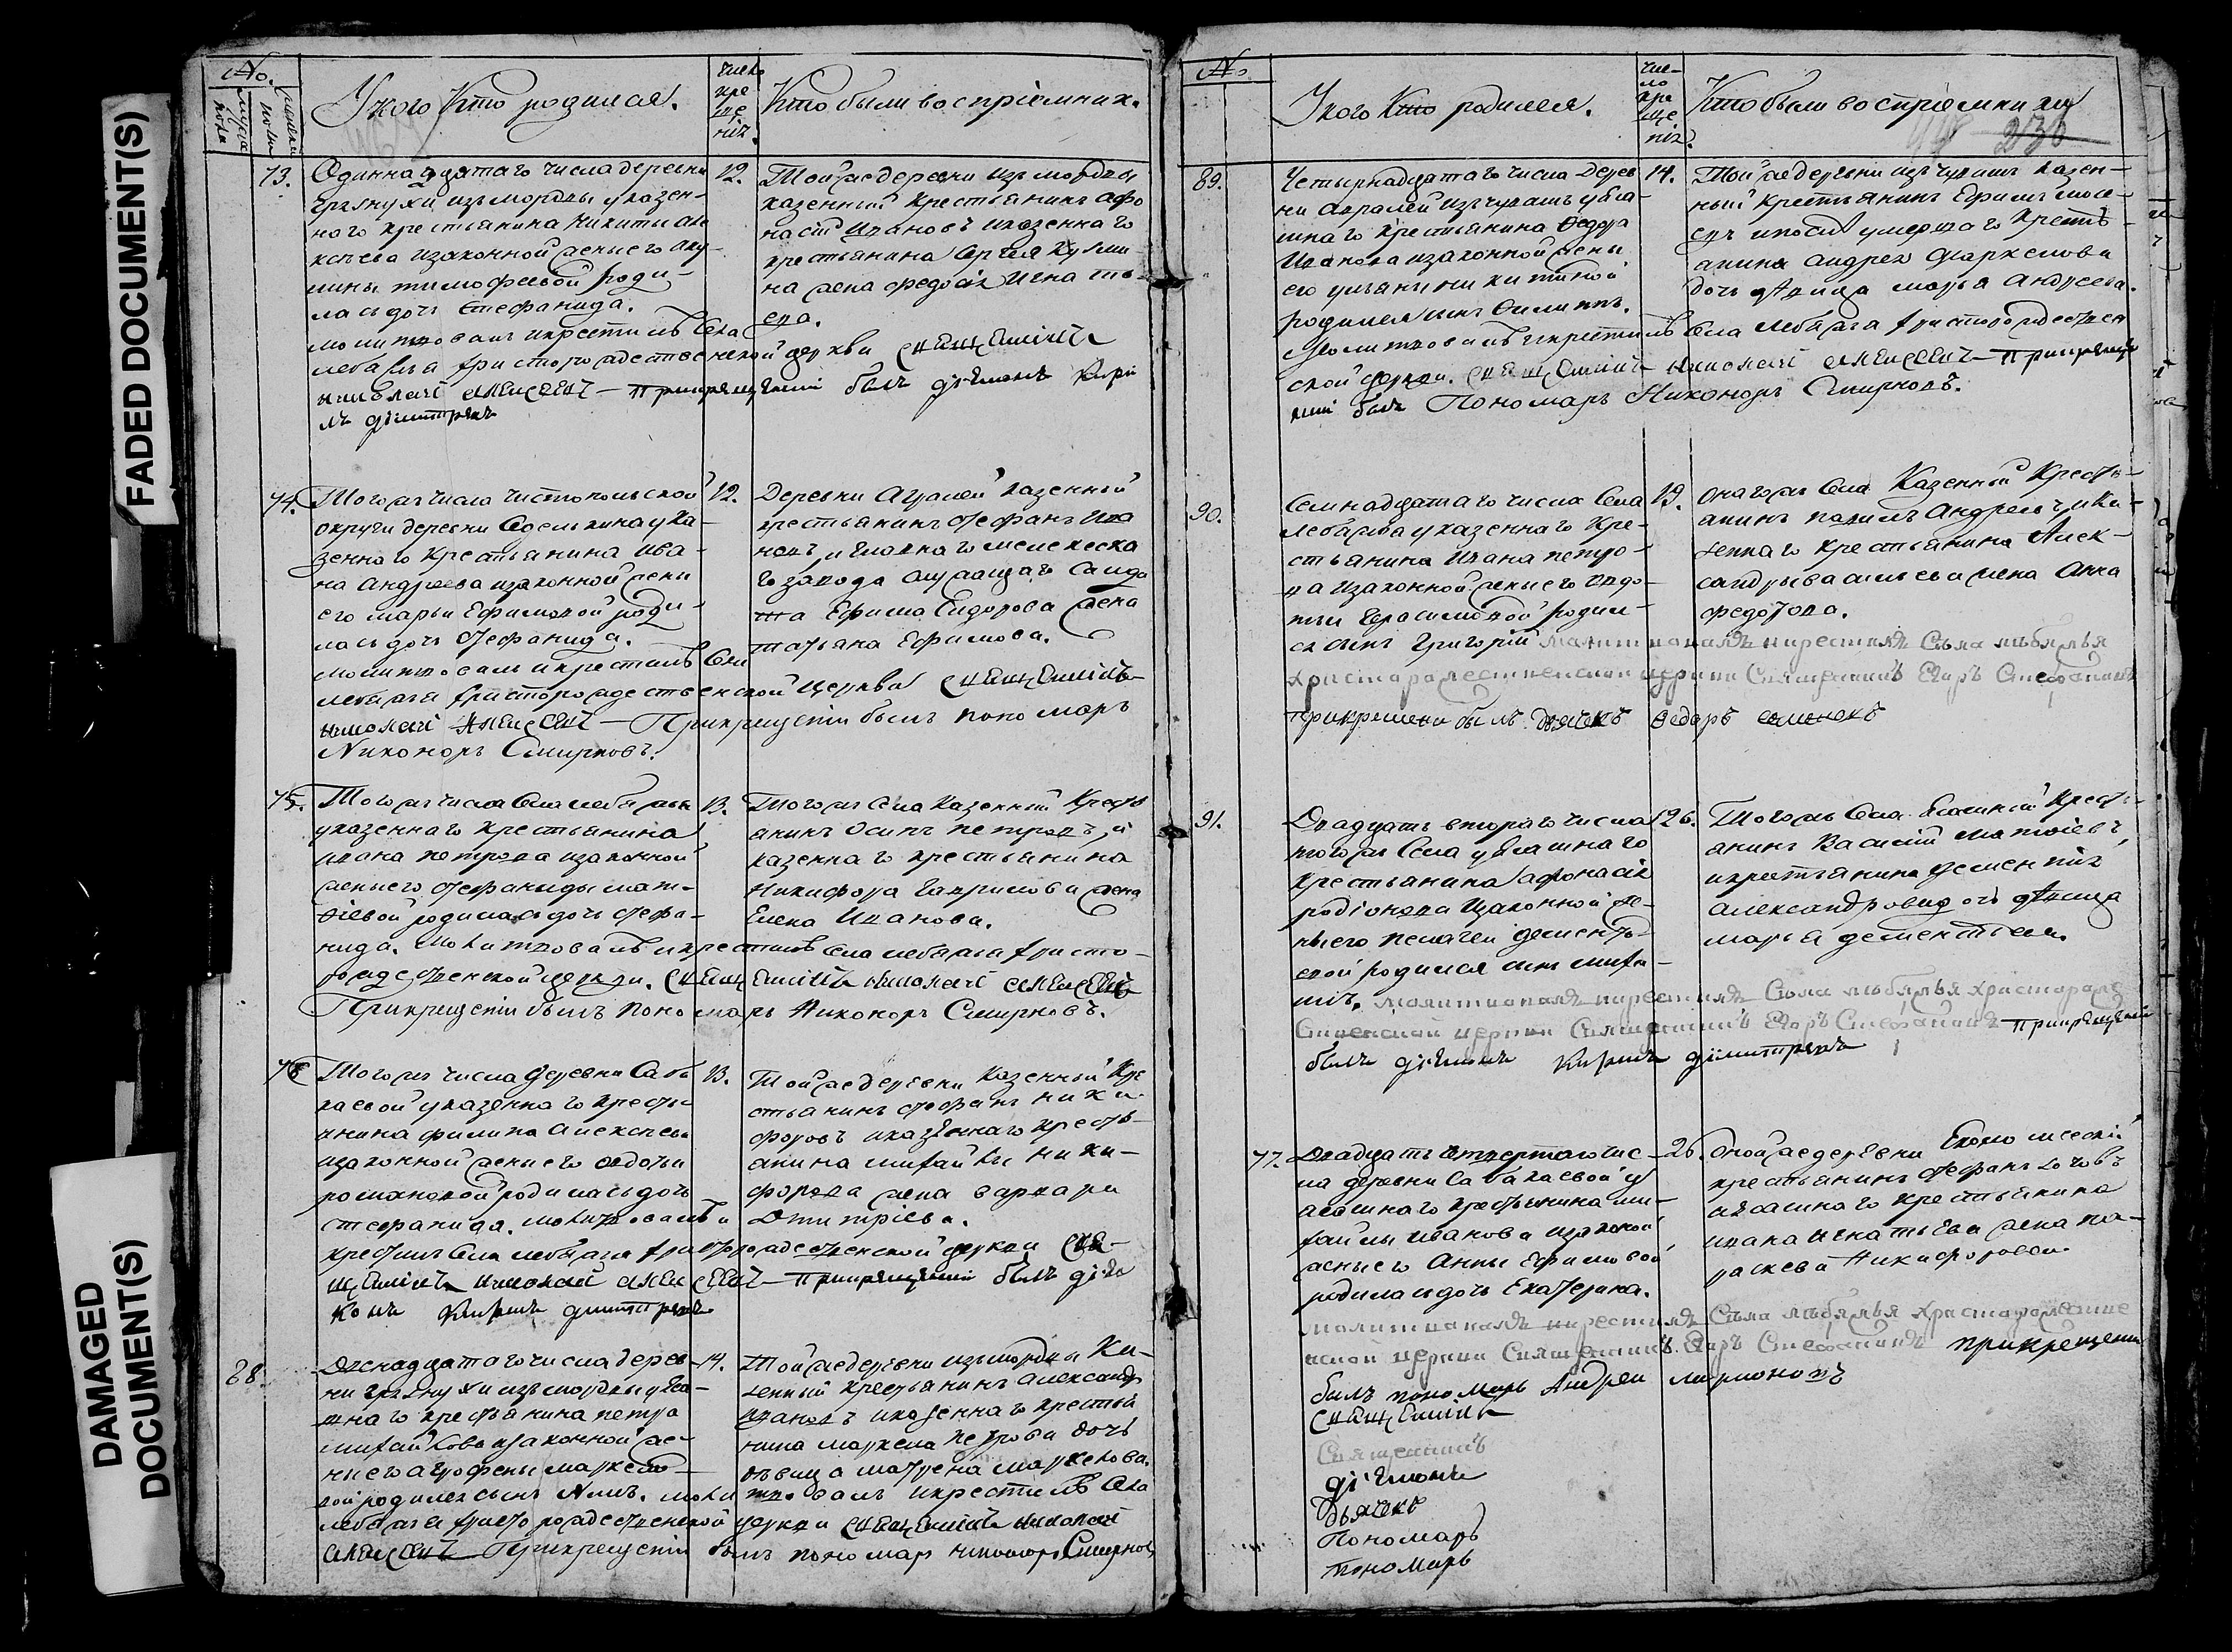 FADED DOCUMENT(S)
DAMAGED
DOCUMENT(S)
No.
мужеска
пола
женска
пола
У кого Кто родился.
число
кре
ще
нія.
Кто были воспріемники.
73.
Одиннадцатаго числа деревни
изъ мордвы у казен-
наго крестьянина Никиты Але
ксѣева изаконной жены его Аку-
лины тимофеевой роди-
лась дочь Стефанида.
молитвовалъ икрестилъ Села
лебяжья христорождественской церкви священникъ
николай алексеевъ — прикрещеніи былъ діаконъ Кири
лъ димитревъ
12.
Той же деревни изъ мордвы
казенный крестьянинъ Афо
насій Ивановъ иказеннаго
крестьянина Сергея Кузми
на жена федосія Игнатье
ва.
74.
Того жъ числа Чистопольской
округи деревни Сделькина у ка-
зеннаго крестьянина Ива-
на Андреева изаконной жены
его марьи Ефимовой роди-
лась дочь стефанида.
молитвовалъ икрестилъ Села
лебяжья христорождественской церкви священникъ
николай Алексеевъ — Прикрещеніи былъ пономарь
Никоноръ Смирновъ.
12.
Деревни казенный
крестьянинъ стефанъ Ива
новъ, и
го завода
та Ефима Сидорова жена
татьяна Ефимова.
75.
Того жъ числа Села лебяжья
у казеннаго крестьянина
ивана петрова изаконной
жены его стефаниды мат-
ѳіевой родилась дочь стефа-
нида. молитвовалъ икрестилъ Села лебяжья христо-
рождественской церкви. священникъ николай алексеевъ
Прикрещеніи былъ пономарь Никоноръ Смирновъ.
13.
Того жъ Села Казенный Кресть
янинъ Осипъ петровъ, и
казеннаго крестьянина
Никифора Гаврилова жена
Елена Иванова.
76
Того жъ числа деревни Саба
каевой у казеннаго кресть
янина филипа Алексѣева
изаконной жены его авдотьи
романовой родилась дочь
стефанида. молитвовалъ и
крестилъ Села лебяжья христорождественской церкви свя-
щенникъ николай алексеевъ — прикрещеніи былъ діа
конъ Кирилъ димитревъ
13.
Той же деревни Казенный Кре
стьянинъ стефанъ ники
форовъ иказеннаго кресть-
янина михайлы ники-
форова жена варвара
Дмитріева.
88.
Двенадцатаго числа дерев-
ни изъ мордвы у
наго крестьянина петра
михайлова изаконной же-
ны его агрофены маркело-
вой родился сынъ молитвовалъ икрестилъ Села
лебяжья христорождественской церкви священникъ николай
алексеевъ Прикрещеніи былъ пономарь никоноръ Смирновъ
14.
Той же деревни изъ мордвы Ка-
зенный крестьянинъ александръ
Ивановъ иказеннаго крестья
нина маркела петрова дочь
дѣвица матрена маркелова.
No
У кого Кто родился.
чис-
ло
кре
ще
нія.
Кто были воспріемники
230
89.
Четырнадцатаго числа Дерев
ни изъ чувашъ у
наго крестьянина Ѳедора
Иванова изаконной жены
его ульяны никитиной
родился сынъ Филиппъ.
Молитвовалъ икрестилъ Села лебяжья христорождествен
ской церкви. священникъ николай алексеевъ — прикреще
ніи былъ Пономарь Никоноръ Смирновъ.
14.
Той же деревни изъ чувашъ казен-
ный крестьянинъ Ефимъ
евъ умершаго кресть-
янина Андрея маркелова
дочь дѣвица марья Андреева.
90.
Семнадцатаго числа Села
лебяжья у казеннаго кре-
стьянина Ивана петро-
ва изаконной жены его авдо-
тьи Герасимовой родил-
ся сынъ Григорій молитвовалъ икрестилъ Села лебяжья
христорождественской церкви Священникъ Егоръ Стефановъ
прикрещени былъ дьячекъ Ѳедоръ
19.
Онаго жъ Села Казенный Кресть-
янинъ Андреевъ, ика-
зеннаго крестьянина Алек-
сандры васильева жена Анна
федотова.
91.
Двадцать втораго числа
того жъ Села у
крестьянина афонасія
родіонова изаконной же-
ны его пелагеи дементь-
евой родился сынъ миха-
илъ. молитвовалъ икрестилъ Села лебяжья христорожде
ственской церкви Священникъ Егоръ Стефановъ прикрещеніи
былъ діаконъ Кирилъ димитревъ
26.
Того жъ Села кресть-
янинъ Василій матвіевъ
икрестьянина дементія
александрова дочь дѣвица
марья дементьева.
77.
Двадцать четвертаго чис-
ла деревни Сабакаевой у
крестьянина ми-
хайлы иванова изаконой
жены его Анны Ефимовой
родилась дочь Екатерина.
молитвовалъ икрестилъ Села лебяжья христорождестве
нской церкви Священникъ Егоръ Стефановъ прикрещени
былъ пономарь Андреи ларионовъ
26.
Оной же деревни
крестьянинъ стефанъ
крестьянина
ивана игнатьева жена па-
раскева Никифорова.
священникъ
Священникъ
діаконъ
дьячекъ
Пономарь
пономарь